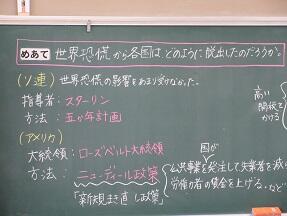 めあて 世界恐慌から各国は、どのように脱出したのだろうか。
(ソ連) 世界恐慌の影響をあまり受けなかった。
指導者：スターリン
方法：五か年計画
高い
関税を
かける
(アメリカ)
大統領：ローズベルト大統領
方法：ニューディール政策
「新規まき直し政策」
国が
公共事業を発注して失業者を減ら
労働者の賃金を上げる。など